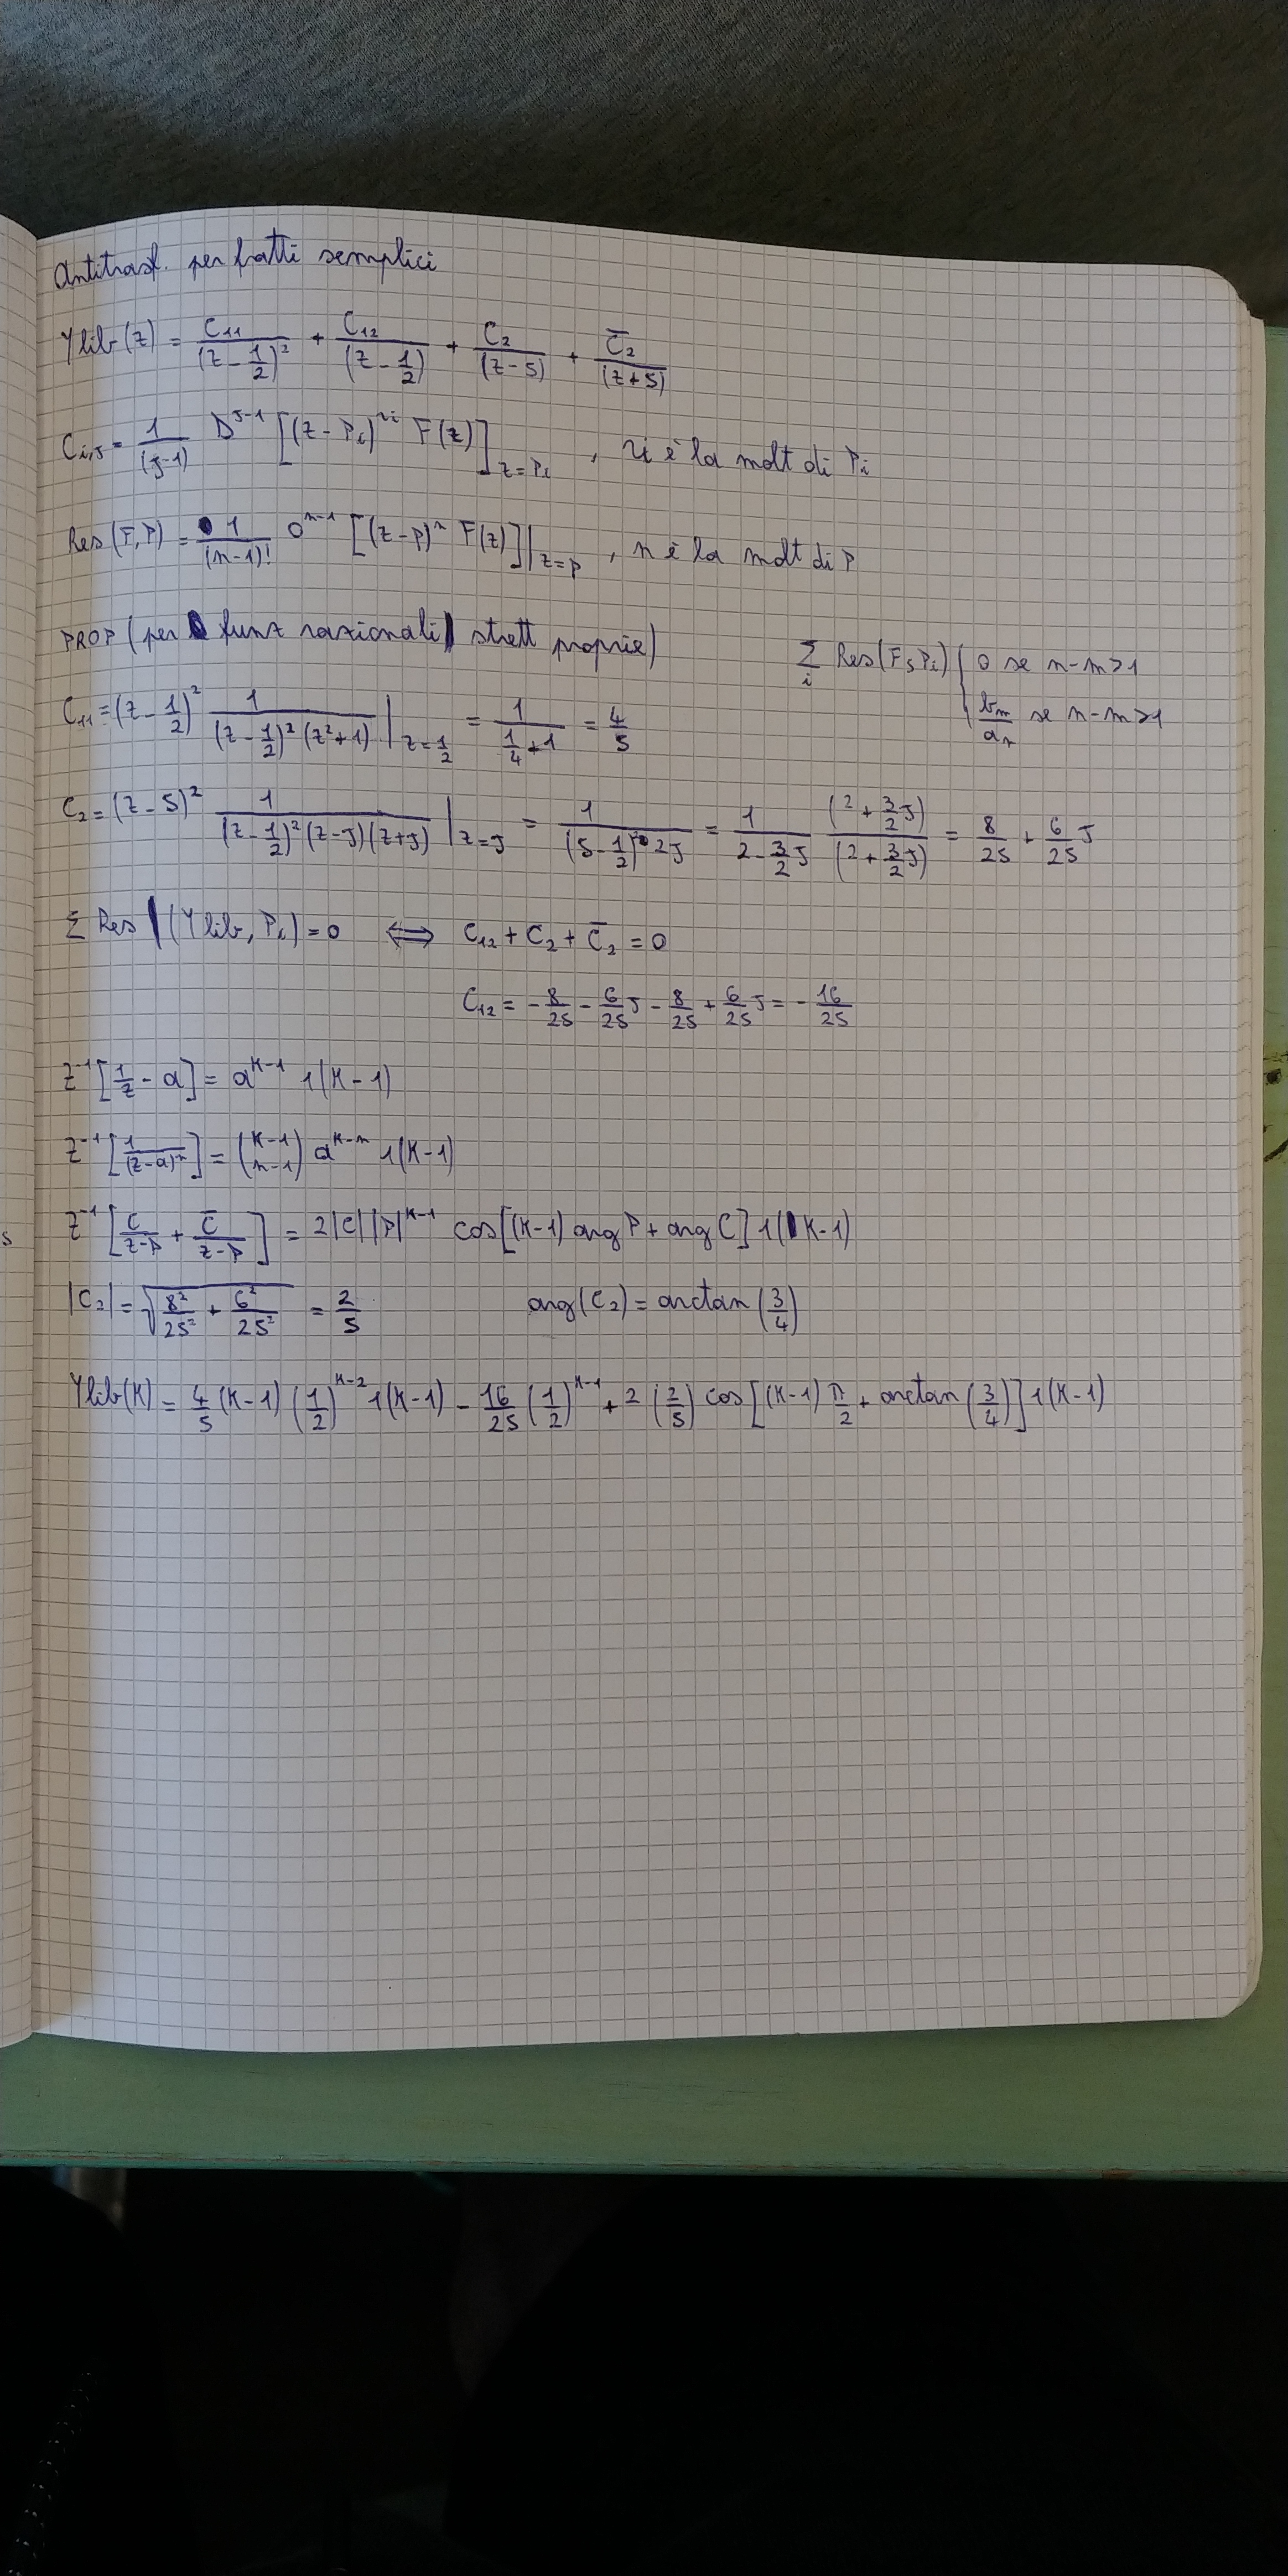 Antitrasf. per fratti semplici
Ylib(z) = C₁₁/(z - 1/2)² + C₁₂/(z - 1/2) + C₂/(z - J) + C̄₂/(z + J)
Cᵢ,ⱼ = 1/(J-1) D^(J-1) [(z - Pᵢ)^(ri) F(z)]_(z=Pᵢ) , ri è la molt di Pᵢ
Res(F,P) = 1/(n-1)! D^(n-1) [(z-p)ⁿ F(z)]|_(z=p) , n è la molt di P
PROP (per funz razionali strett proprie)
Σᵢ Res(F, Pᵢ) { 0 se n-m>1
bₘ/aₙ se n-m>1
C₁₁ = (z - 1/2)² 1/((z - 1/2)² (z²+1)) |_(z=1/2) = 1/(1/4 + 1) = 4/5
C₂ = (z - J)² 1/((z - 1/2)² (z-J)(z+J)) |_(z=J) = 1/((J - 1/2)² 2J) = 1/(2 - 3/2 J) (2 + 3/2 J)/(2 + 3/2 J) = 8/25 + 6/25 J
Σ Res (Ylib, Pᵢ) = 0 ⟺ C₁₂ + C₂ + C̄₂ = 0
C₁₂ = - 8/25 - 6/25 J - 8/25 + 6/25 J = - 16/25
Z⁻¹ [1/z - a] = a^(K-1) 1(K-1)
Z⁻¹ [1/(z-a)ⁿ] = (K-1 n-1) a^(K-n) 1(K-1)
Z⁻¹ [C/(z-p) + C̄/(z-p)] = 2|C| |P|^(K-1) cos[(K-1) arg P + arg C] 1(K-1)
|C₂| = √(8²/25² + 6²/25²) = 2/5 arg(C₂) = arctan (3/4)
Ylib(K) = 4/5 (K-1) (1/2)^(K-2) 1(K-1) - 16/25 (1/2)^(K-1) + 2 (2/5) cos [(K-1) π/2 + arctan (3/4)] 1(K-1)